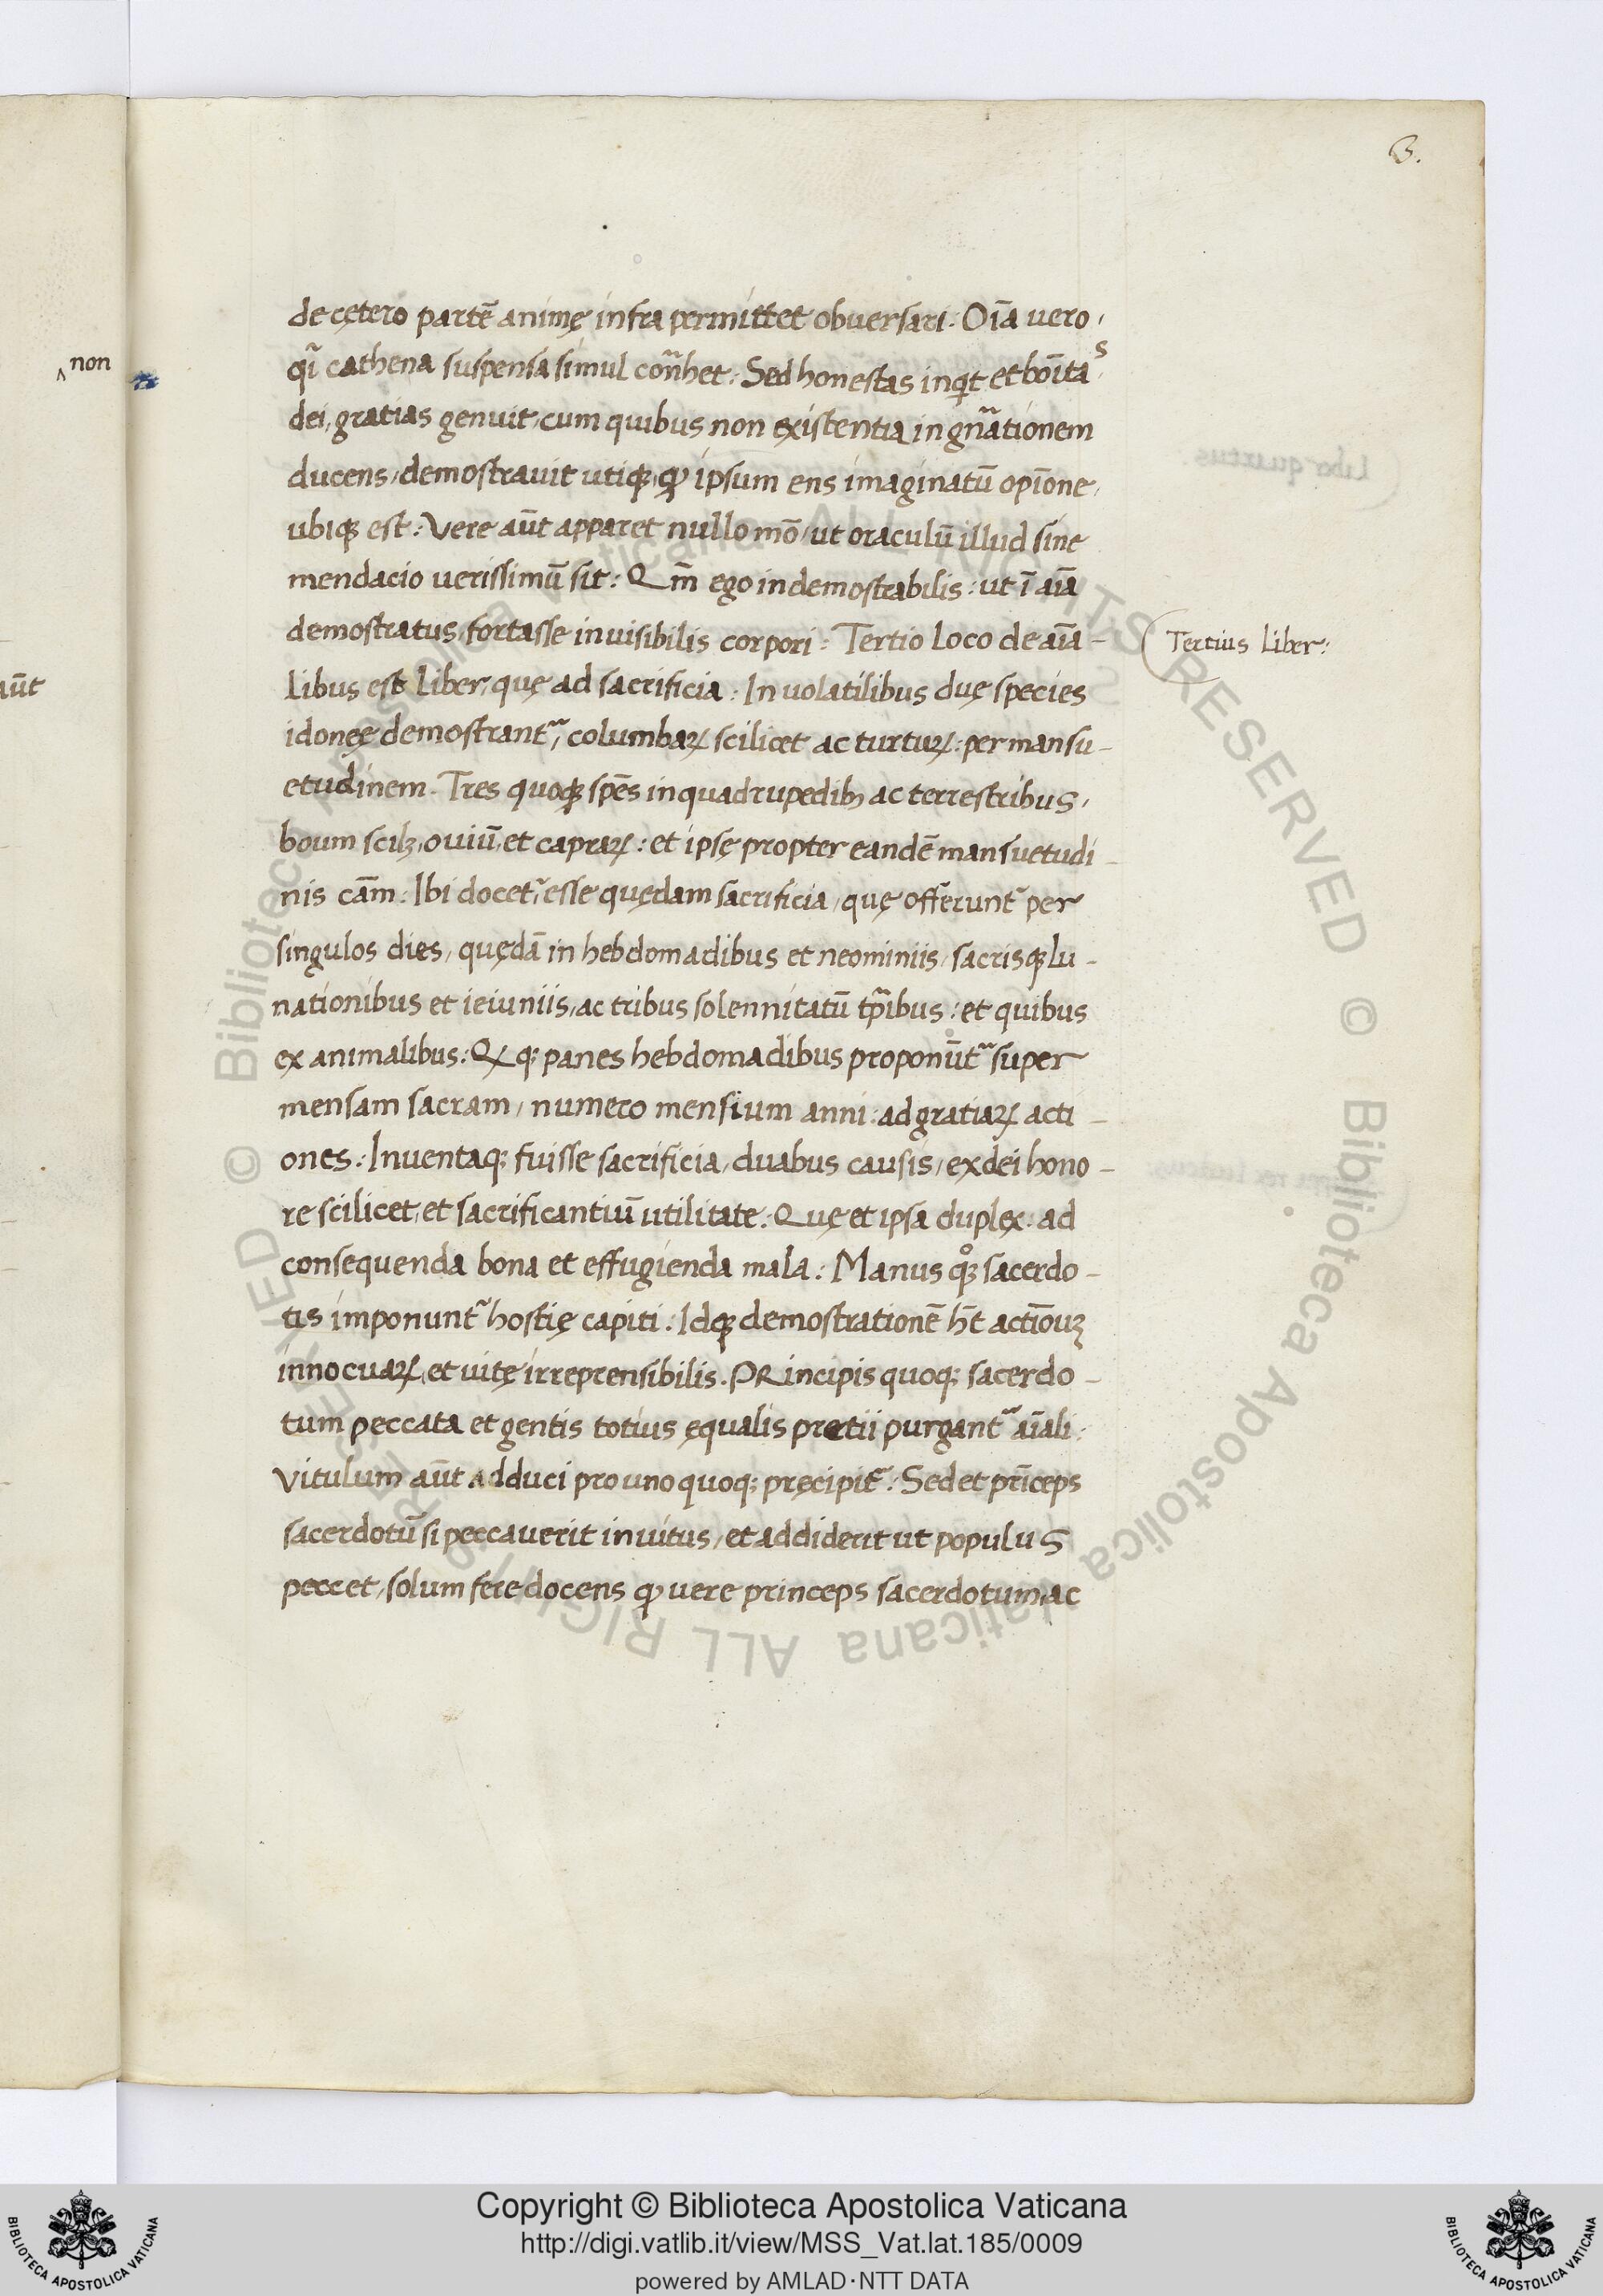 3.
non
aūt
de cętero partē animę infra permittet obversari. Oīa vero,
qī cathena suspensa simul con̄het: Sed honestas inqt et bōitas
dei, gratias genuit, cum quibus non existentia in gn̄ationem
ducens, demostravit utiqꝫ, ꝙ ipsum ens imaginatū opīone,
ubiqꝫ est: Vere aūt apparet nullo mō, ut oraculū illud sine
mendacio verissimū sit: Qm̄ ego indemostrabilis: ut ī aīa
demostratus, fortasse invisibilis corpori: Tertio loco de aīa-
libus est liber, quę ad sacrificia: In volatilibus duę species
idonęę demostrant᷑, columbaꝝ scilicet ac turtuꝝ: per mansu-
etudinem. Tres quoqꝫ spēs in quadrupedibꝫ ac terrestribus,
boum scilꝫ, oviū, et capraꝝ: et ipsę propter eandē mansuetudi-
nis cām: Ibi docet᷑ esse quędam sacrificia, quę offerunt᷑ per
singulos dies, quędā in hebdomadibus et neominiis, sacrisqꝫ lu-
nationibus et ieiuniis, ac tribus solennitatū tp̄ibus: et quibus
ex animalibus: Qꝫ qꝫ panes hebdomadibus proponūt᷑ super
mensam sacram, numero mensium anni: ad gratiaꝝ acti-
ones: Inventaqꝫ fuisse sacrificia, duabus causis, ex dei hono-
re scilicet, et sacrificantiū utilitate: Quę et ipsa duplex: ad
consequenda bona et effugienda mala: Manus qͦꝫ sacerdo-
tis imponunt᷑ hostię capiti: Idqꝫ demostrationē ht̄ actīouꝫ
innocuaꝝ, et vitę irreprensibilis. PRincipis quoqꝫ sacerdo-
tum peccata et gentis totius ęqualis pretii purgant᷑ aīali:
Vitulum aūt adduci pro uno quoqꝫ pręcipit᷑: Sed et prīceps
sacerdotū si peccaverit invitus, et addiderit ut populus
peccet, solum fere docens ꝙ vere princeps sacerdotum, ac
Tertius liber:
Copyright © Biblioteca Apostolica Vaticana
http://digi.vatlib.it/view/MSS_Vat.lat.185/0009
powered by AMLAD·NTT DATA
BIBLIOTECA APOSTOLICA VATICANA
BIBLIOTECA APOSTOLICA VATICANA
© Biblioteca Apostolica Vaticana ALL RIGHTS RESERVED © Biblioteca Apostolica Vaticana ALL RIGHTS RESERVED